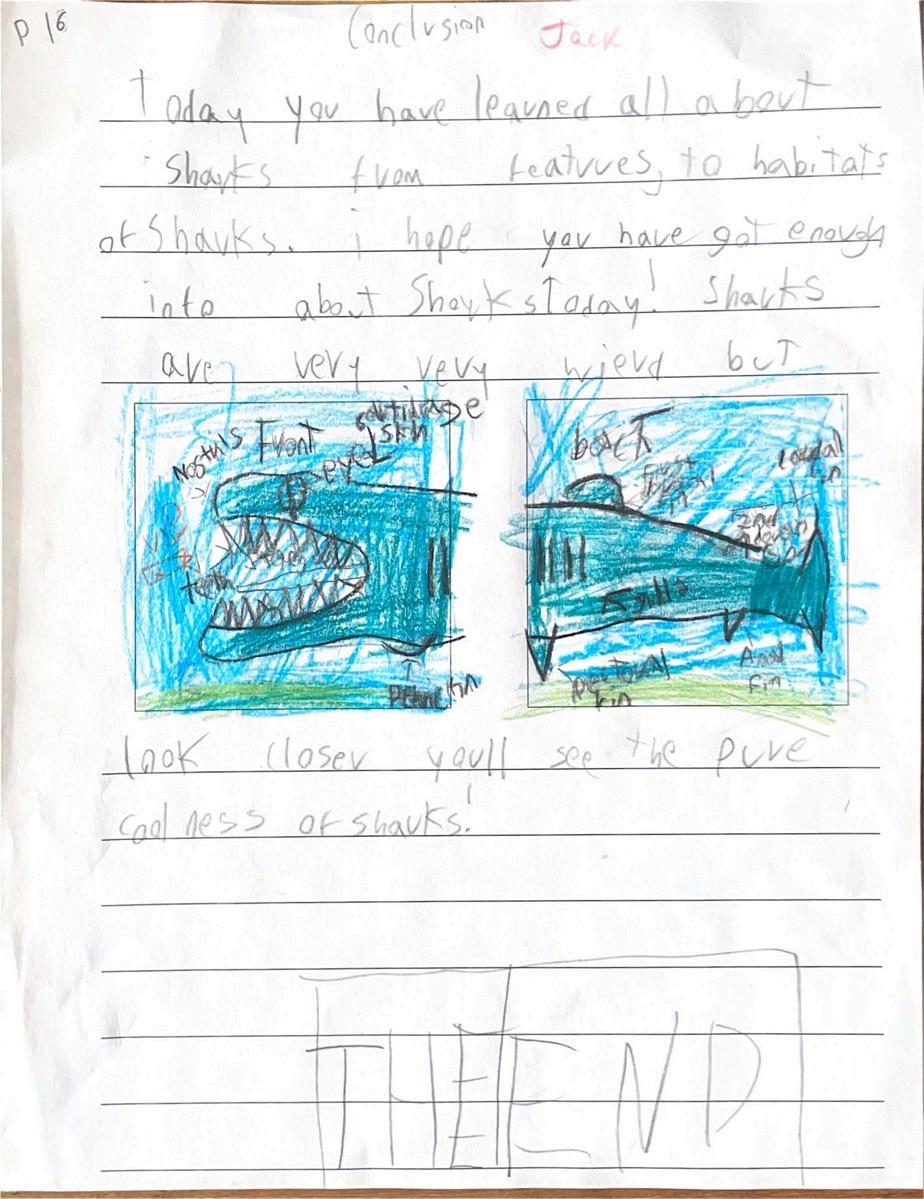 P 16 Conclusion Jack
Today you have learned all about
Sharks from features, to habitats
of Sharks. i hope you have got enough
info about Sharks Today! Sharks
are very very wierd but
Front
cartilage
skin
eye
teeth
back
First
fin
2nd
fin
Gills
pectoral
fin
Anal
fin
look closer youll see the pure
coolness of sharks!
THE END